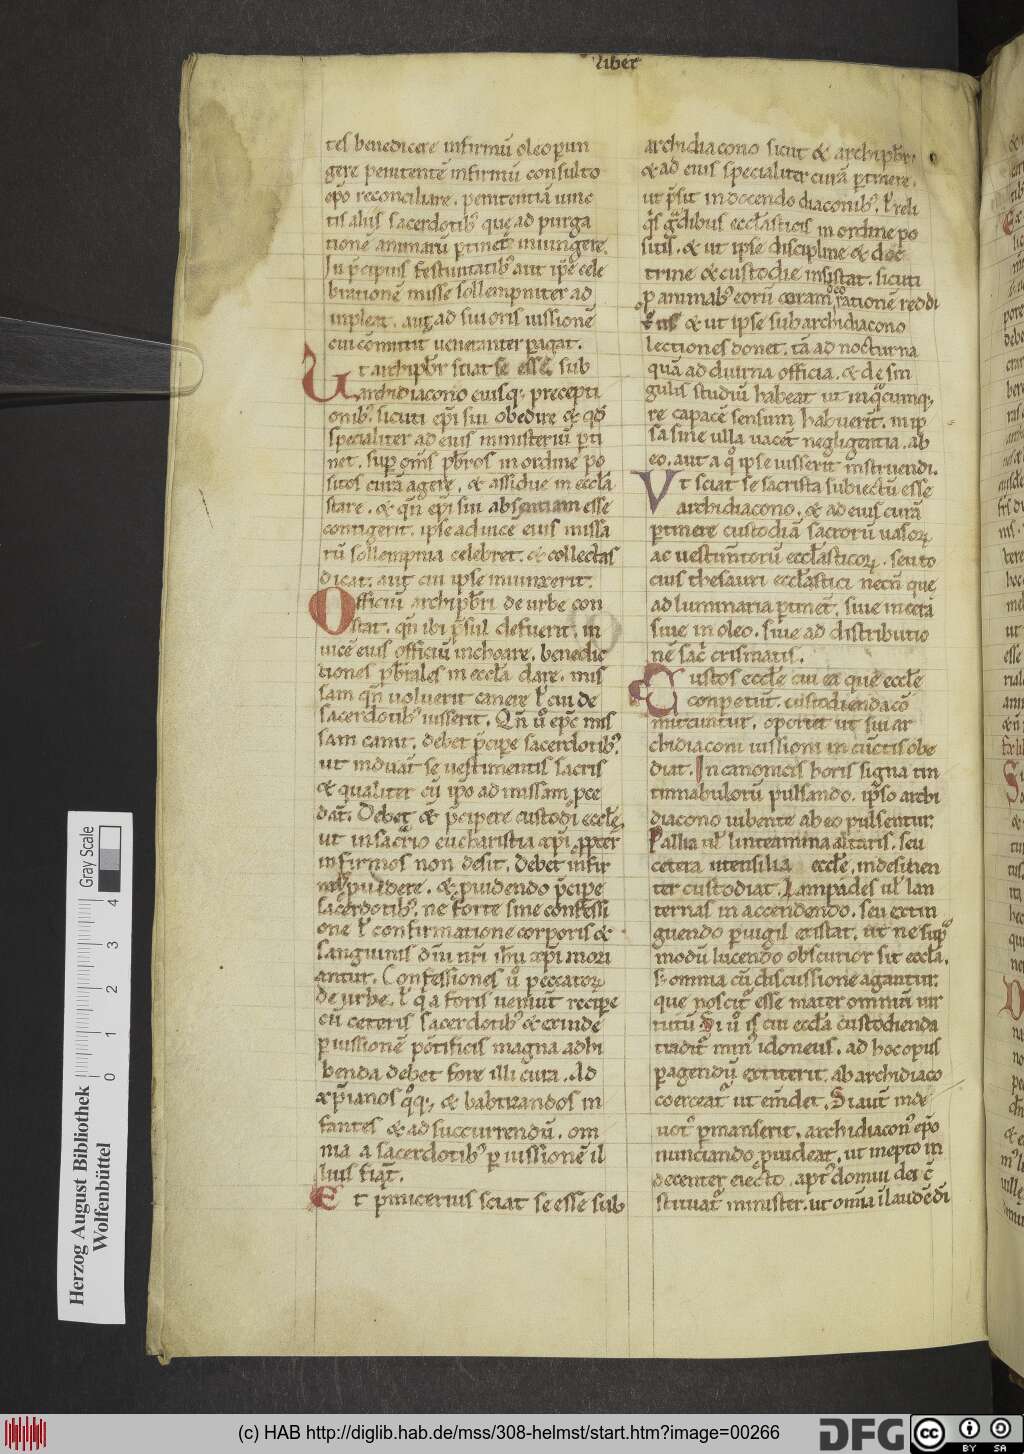 liber
tes benedicere infirmū oleo perun
gere penitentē infirmū consulto
ep̄o reconciliare. penitentiā uinc
tis aliis sacerdotibꝰ que ad purga
tionē animarū ꝑtinet iniungere.
In p̄cipuis festiuitatibꝰ aut ip̄e cele
brationē misse sollempniter ad
impleat. aut ad sui oris iussionē
cui cōmittit ueneranter ꝑagat.
Ut archipb̄r sciat se esse sub
archidiacono eiusq; precepti
onibꝰ. sicuti ep̄i sui obedire & qd̄
specialiter ad eius ministeriū ꝑti
net. suꝑ om̄s pb̄ros in ordine po
sitos curā agere. & assidue in eccl̄a
stare. & qn̄ ep̄i sui absentiam esse
contigerit. ipse ad uice eius missa
rū sollempnia celebret. & collectas
dicat. aut cui ipse iniunxerit.
Officiū archipb̄ri de urbe con
stat. qn̄ ibi p̄sul defuerit. in
uice eius officiū inchoare. benedic
tiones pb̄rales in eccl̄a dare. mis
sam qn̄ uoluerit canere ł cui de
sacerdotibꝰ iusserit. Qn̄ ū ep̄c mis
sam canit. debet p̄cipe sacerdotibꝰ.
ut induāt se uestimentis sacris
& qualiter cū ip̄o ad missam pce
dāt. Debet & p̄cipere custodi eccl̄e.
ut in sacrio eucharistia xp̄i ppter
infirmos non desit. debet infir
mis puidere. & puidendo p̄cipe
sacerdotibꝰ. ne forte sine confessi
one ł confirmatione corporis &
sanguinis dn̄i nr̄i ih̄u xp̄i mori
antur. Confessiones ū peccatorꝝ
de urbe. ł q a foris ueniūt recipe
cū ceteris sacerdotibꝰ & exinde
ꝑ iussionē pontificis magna adhi
benda debet fore illi cura. Ad
xp̄ianos qͦq;. & babtizandos in
fantes & ad succurrendū. om
nia a sacerdotibꝰ ꝑ iussionē il
lius fiāt.
Et pͥmicerius sciat se esse sub
archidiacono sicut & archipb̄r.
& ad eius specialiter curā ꝑtinere.
ut p̄sit in docendo diaconibꝰ. ł reli
qͥs gͣdibus eccl̄asticis in ordine po
sitis. & ut ipse discipline & doc
trine & custodie insistat. sicuti
ꝓ animabꝰ eorū coram deo rationē reddi
turus & ut ipse sub archidiacono
lectiones donet. tā ad nocturna
quā ad diurna officia. & de sin
gulis studiū habeat ut inqͣcumq;
re capacē sensum habuerit. in ip
sa sine ulla uacet negligentia. ab
eo. aut a qͦ ipse iusserit instruendi.
Vt sciat se sacrista subiectū esse
archidiacono. & ad eius curā
ꝑtinere custodiā sacrorū uasorꝝ
ac uestim̄torū eccl̄asticorꝝ. seu to
cius thesauri eccl̄astici necn̄ que
ad luminaria ꝑtinet. siue in cera
siue in oleo. siue ad distributio
nē sac̄ crismatis.
Custos eccl̄e cui ea que eccl̄e
conpetūt. custodienda cō
mittuntur. oportet ut sui ar
chidiaconi iussioni in cūctis obe
diat. In canonicis horis signa tin
tinnabulorū pulsando. ipso archi
diacono iubente ab eo pulsentur.
Pallia uł linteamina altaris. seu
cetera utensilia eccl̄e. indesinen
ter custodiat. Lampades uł lan
ternas in accendendo. seu extin
guendo ꝑuigil existat. ut ne supͣ
modū lucendo obscurior sit eccl̄a.
s; omnia cū discussione agantur.
que noscit̄ esse mater omniū uir
tutū. Si ū is cui eccl̄a custodienda
tradit̄ minꝰ idoneus. ad hoc opus
ꝑagendū extiterit. ab archidiaco
coerceat̄ ut em̄det. Si aut̄ inde
uotꝰ ꝑmanserit. archidiaconꝰ ep̄o
nunciando puideat. ut inepto in
decenter eiecto. aptꝰ domui dei c̄
stituat̄ minister. ut om̄ia ī laudē dī
Herzog August Bibliothek
Wolfenbüttel
Gray Scale
0 1 2 3 4
(c) HAB http://diglib.hab.de/mss/308-helmst/start.htm?image=00266
DFG
cc BY SA